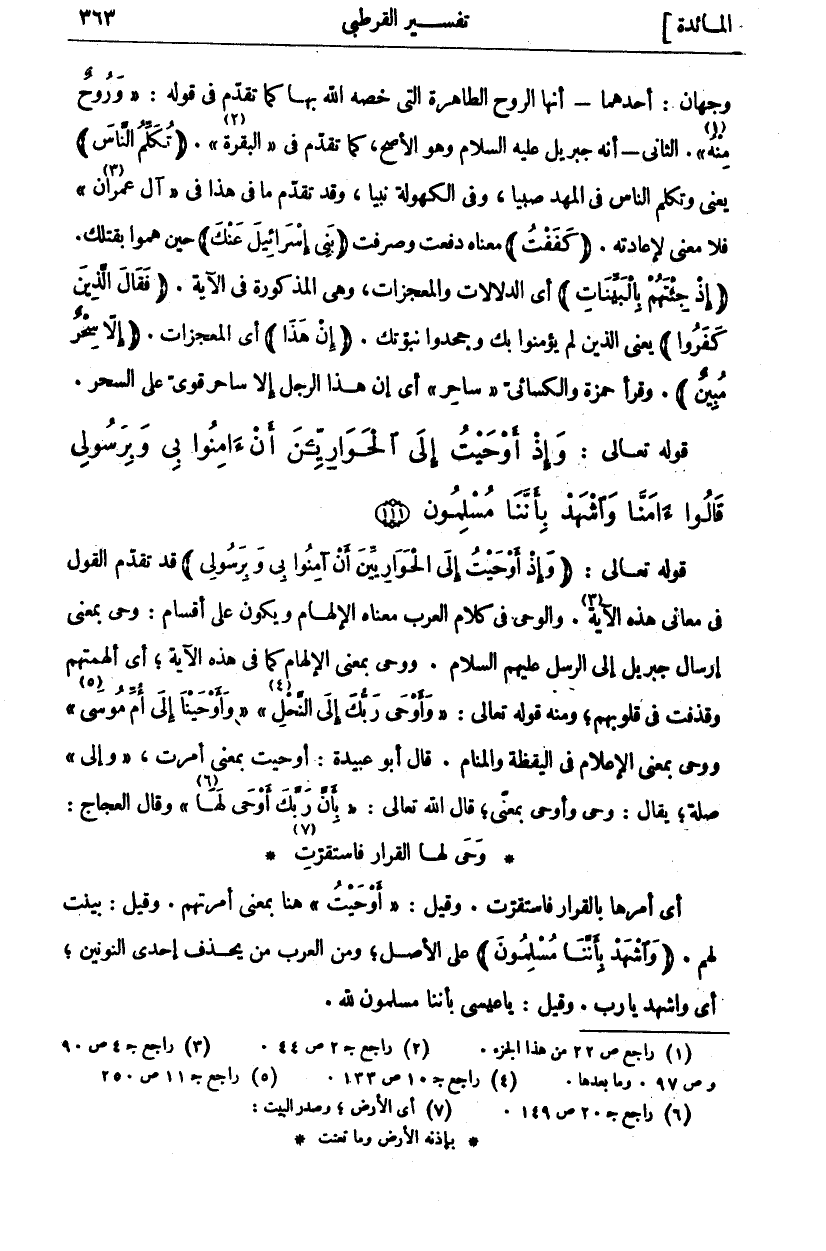 المائدة ] تفسير القرطبى ٣٦٣
وجهان : أحدهما — أنها الروح الطاهرة التى خصه الله بها كما تقدّم فى قوله : « وَرُوحٌ
مِنْهُ(١)». الثانى — أنه جبريل عليه السلام وهو الأصح، كما تقدّم فى « البقرة(٢) » . ﴿ تُكَلِّمُ النَّاسَ ﴾
يعنى وتكلم الناس فى المهد صبيا ، وفى الكهولة نبيا ، وقد تقدّم ما فى هذا فى « آل عمران(٣) »
فلا معنى لإعادته . ﴿ كَفَفْتُ ﴾ معناه دفعت وصرفت ﴿بَنِى إِسْرَائِيلَ عَنْكَ﴾ حين هموا بقتلك.
﴿ إِذْ جِئْتَهُمْ بِالْبَيِّنَاتِ ﴾ أى الدلالات والمعجزات، وهى المذكورة فى الآية . ﴿ فَقَالَ الَّذِينَ
كَفَرُوا ﴾ يعنى الذين لم يؤمنوا بك وجحدوا نبوّتك . ﴿ إِنْ هَذَا ﴾ أى المعجزات . ﴿ إِلَّا سِحْرٌ
مُبِينٌ ﴾ . وقرأ حمزة والكسائىّ « ساحر » أى إن هذا الرجل إلا ساحر قوىّ على السحر .
قوله تعالى : وَإِذْ أَوْحَيْتُ إِلَى ٱلْحَوَارِيِّـۧنَ أَنْ ءَامِنُوا بِى وَبِرَسُولِى
قَالُوا ءَامَنَّا وَٱشْهَدْ بِأَنَّنَا مُسْلِمُونَ ١١١
قوله تعالى : ﴿ وَإِذْ أَوْحَيْتُ إِلَى الْحَوَارِيِّينَ أَنْ آمِنُوا بِى وَبِرَسُولِى ﴾ قد تقدّم القول
فى معانى هذه الآية(٣) . والوحى فى كلام العرب معناه الإلهام ويكون على أقسام : وحى بمعنى
إرسال جبريل إلى الرسل عليهم السلام . ووحى بمعنى الإلهام كما فى هذه الآية ؛ أى ألهمتهم
وقذفت فى قلوبهم؛ ومنه قوله تعالى : « وَأَوْحَى رَبُّكَ إِلَى النَّحْلِ(٤) » « وَأَوْحَيْنَا إِلَى أُمِّ مُوسَى(٥) »
ووحى بمعنى الإعلام فى اليقظة والمنام . قال أبو عبيدة : أوحيت بمعنى أمرت ، « وإلى »
صلة؛ يقال : وحى وأوحى بمعنًى؛ قال الله تعالى : « بِأَنَّ رَبَّكَ أَوْحَى لَهَا(٦) » وقال العجاج :
* وَحَى لها القرار فاستقرّتِ(٧) *
أى أمرها بالقرار فاستقرّت . وقيل : « أَوْحَيْتُ » هنا بمعنى أمرتهم . وقيل : بينت
لهم . ﴿ وَٱشْهَدْ بِأَنَّنَا مُسْلِمُونَ ﴾ على الأصل؛ ومن العرب من يحذف إحدى النونين ؛
أى واشهد يا رب . وقيل : يا عيسى بأننا مسلمون لله .
(١) راجع ص ٢٢ من هذا الجزء . (٢) راجع ج ٢ ص ٤٤ . (٣) راجع ج ٤ ص ٩٠
و ص ٩٧ . وما بعدها . (٤) راجع ج ١٠ ص ١٣٣ . (٥) راجع ج ١١ ص ٢٥٠
(٦) راجع ج ٢٠ ص ١٤٩ . (٧) أى الأرض ؛ وصدر البيت :
* بإذنه الأرض وما تعنت *